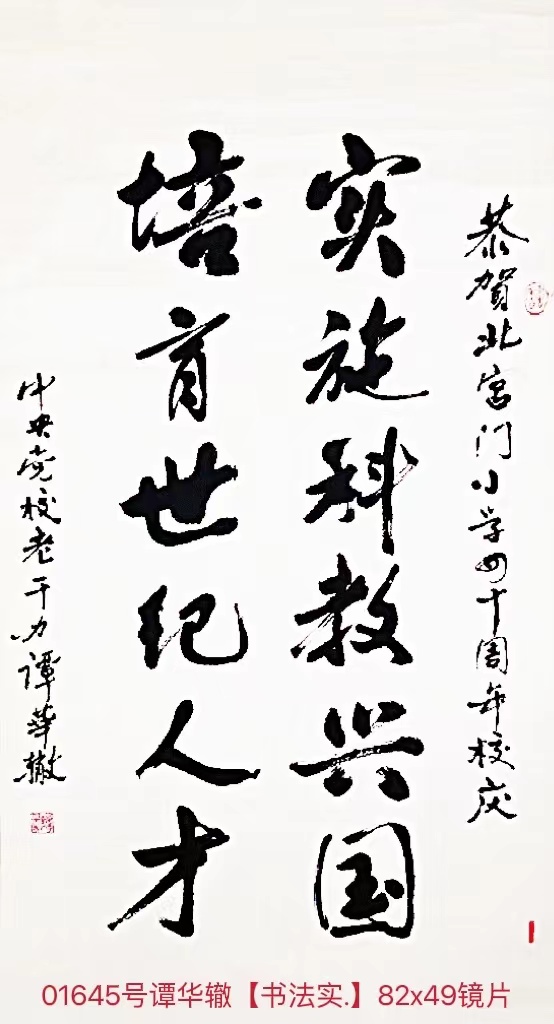 恭贺北宫门小学四十周年校庆
实施科教兴国
培育世纪人才
中央党校老干办谭华辙
01645号谭华辙【书法实.】82x49镜片